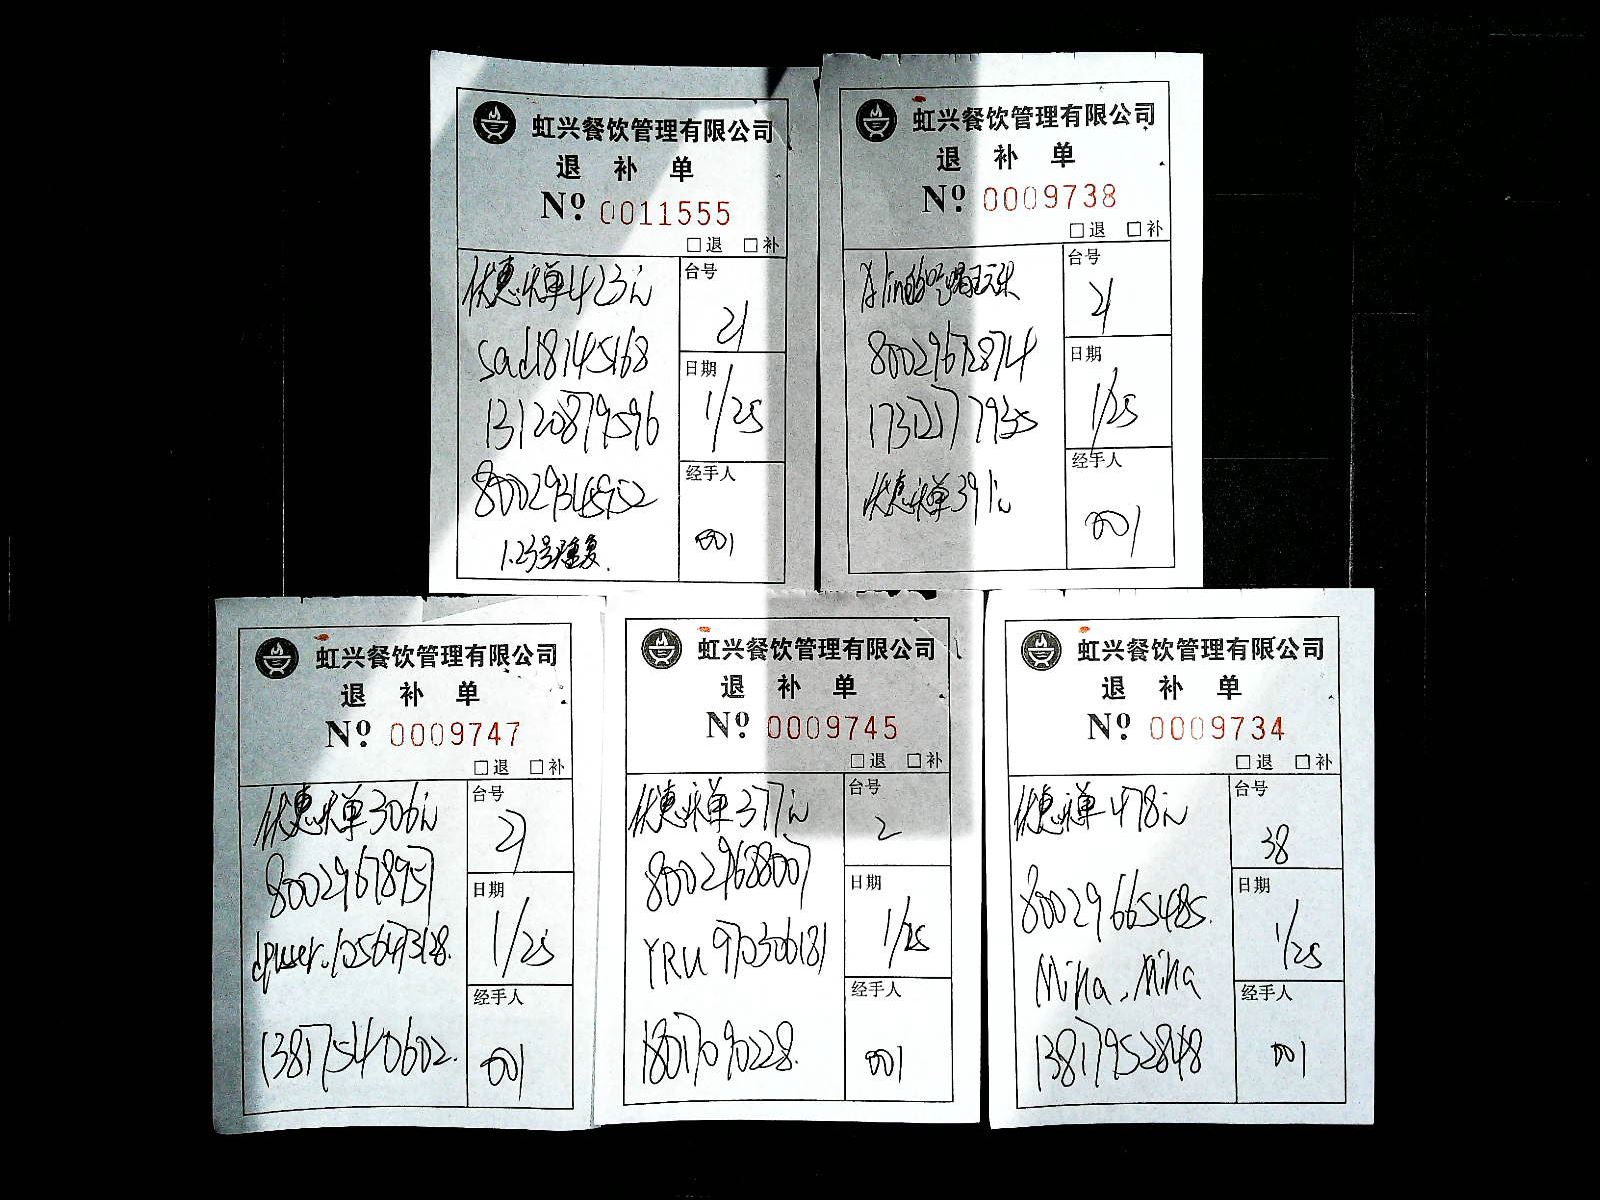 虹兴餐饮管理有限公司
退 补 单
Nº 0011555
□退 □补
优惠买单423元
sad18745168
13120879596
80029345952
1.23号重复.
台号
21
日期
1/25
经手人
001
虹兴餐饮管理有限公司
退 补 单
Nº 0009738
□退 □补
80029672874
17321777935
优惠买单391元
台号
21
日期
1/25
经手人
001
虹兴餐饮管理有限公司
退 补 单
Nº 0009747
□退 □补
优惠买单306元
80029678957
dpuser.1056473128.
13817540602.
台号
21
日期
1/25
经手人
001
虹兴餐饮管理有限公司
退 补 单
Nº 0009745
□退 □补
优惠买单377元
80029688007
YRU970306181
18017090228.
台号
2
日期
1/25
经手人
001
虹兴餐饮管理有限公司
退 补 单
Nº 0009734
□退 □补
优惠买单478元
80029665485.
Mina.Mina
13817952848
台号
38
日期
1/25
经手人
001